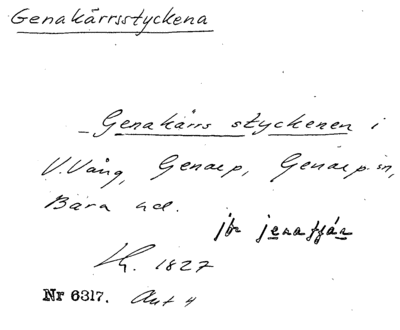 Genakärrsstyckena
Genakärrs styckenen i
V. Vång, Genarp, Genarp sn,
Bara hd.
jfr
1827
Nr 6317. Akt 4